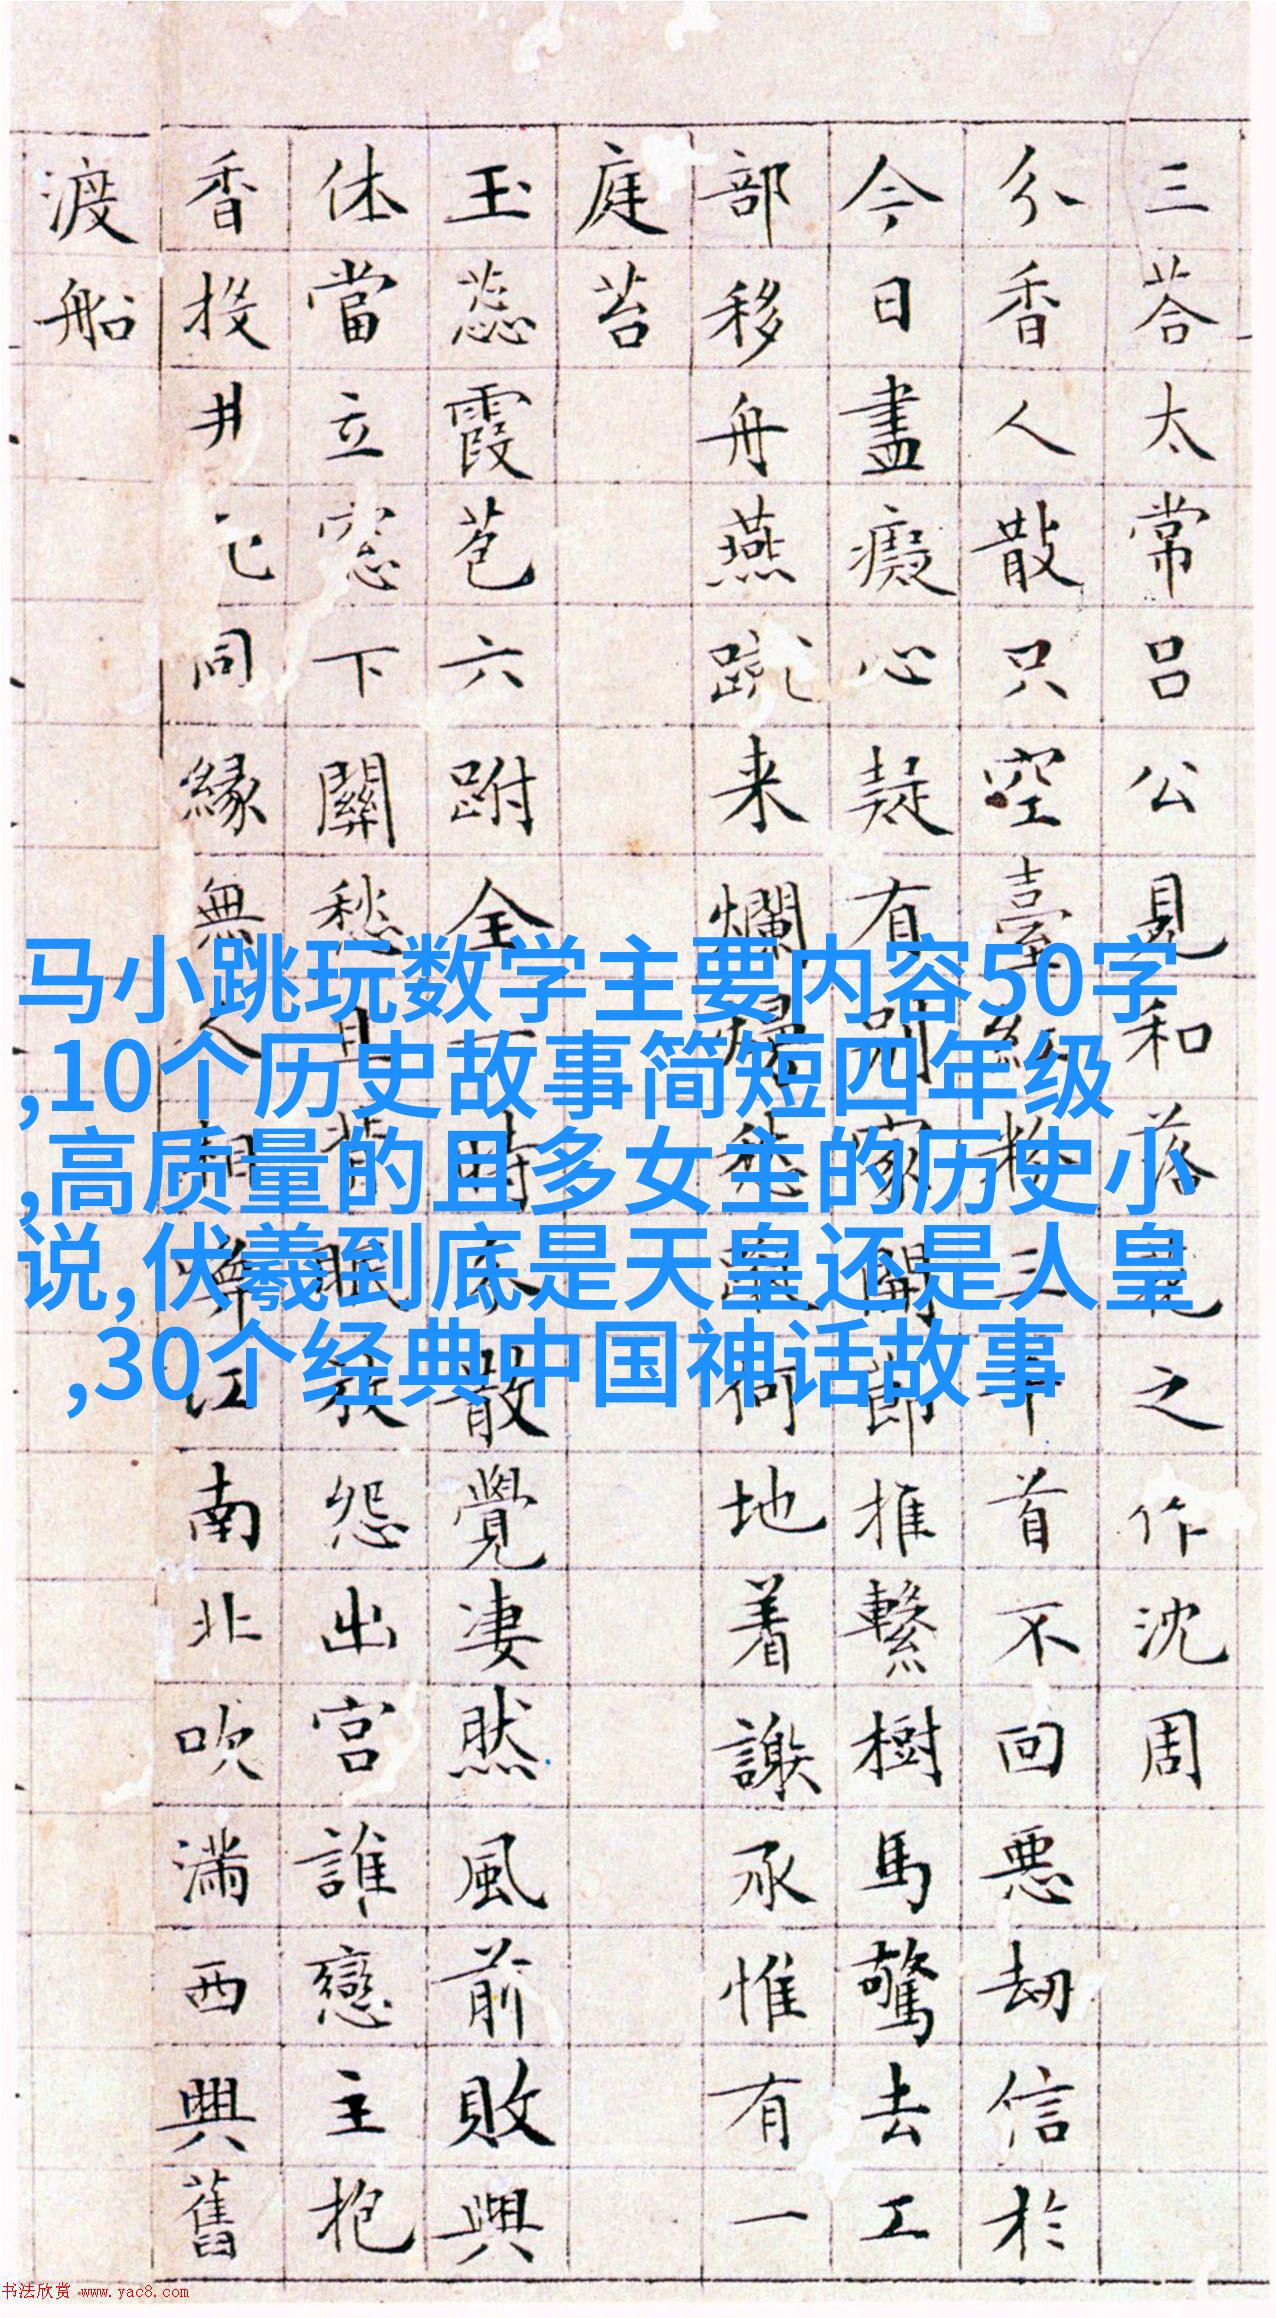 三荅太常吕公見和落花之作沈周
分香人散只空臺紅粉三千首不回悪劫信於
今日盡癡心疑有別家開節推繫樹馬驚去工
部移舟燕蹴来爛熳愁蹤何地着謝承惟有一
庭苔
玉蕊霞苞六跗全一時分散覺凄然風前敗興
休當立窓下關愁且背眠放怨出宮誰戀主抱
香投井死同縁無人相喚江南北吹滿西興舊
渡船
马小跳玩数学主要内容50字
,10个历史故事简短四年级
,高质量的且多女主的历史小
说,伏羲到底是天皇还是人皇
,30个经典中国神话故事
书法欣赏 www.yac8.com